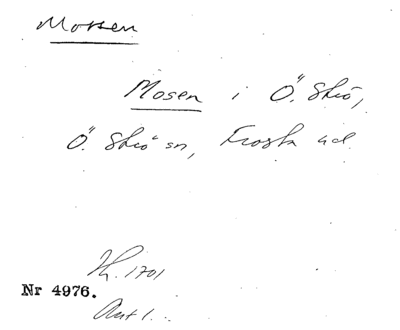 Mossen
Mosen i Ö. Skö,
Ö. Skö sn, Frosta hd
Jb. 1701
Nr 4976.
Ant 1.